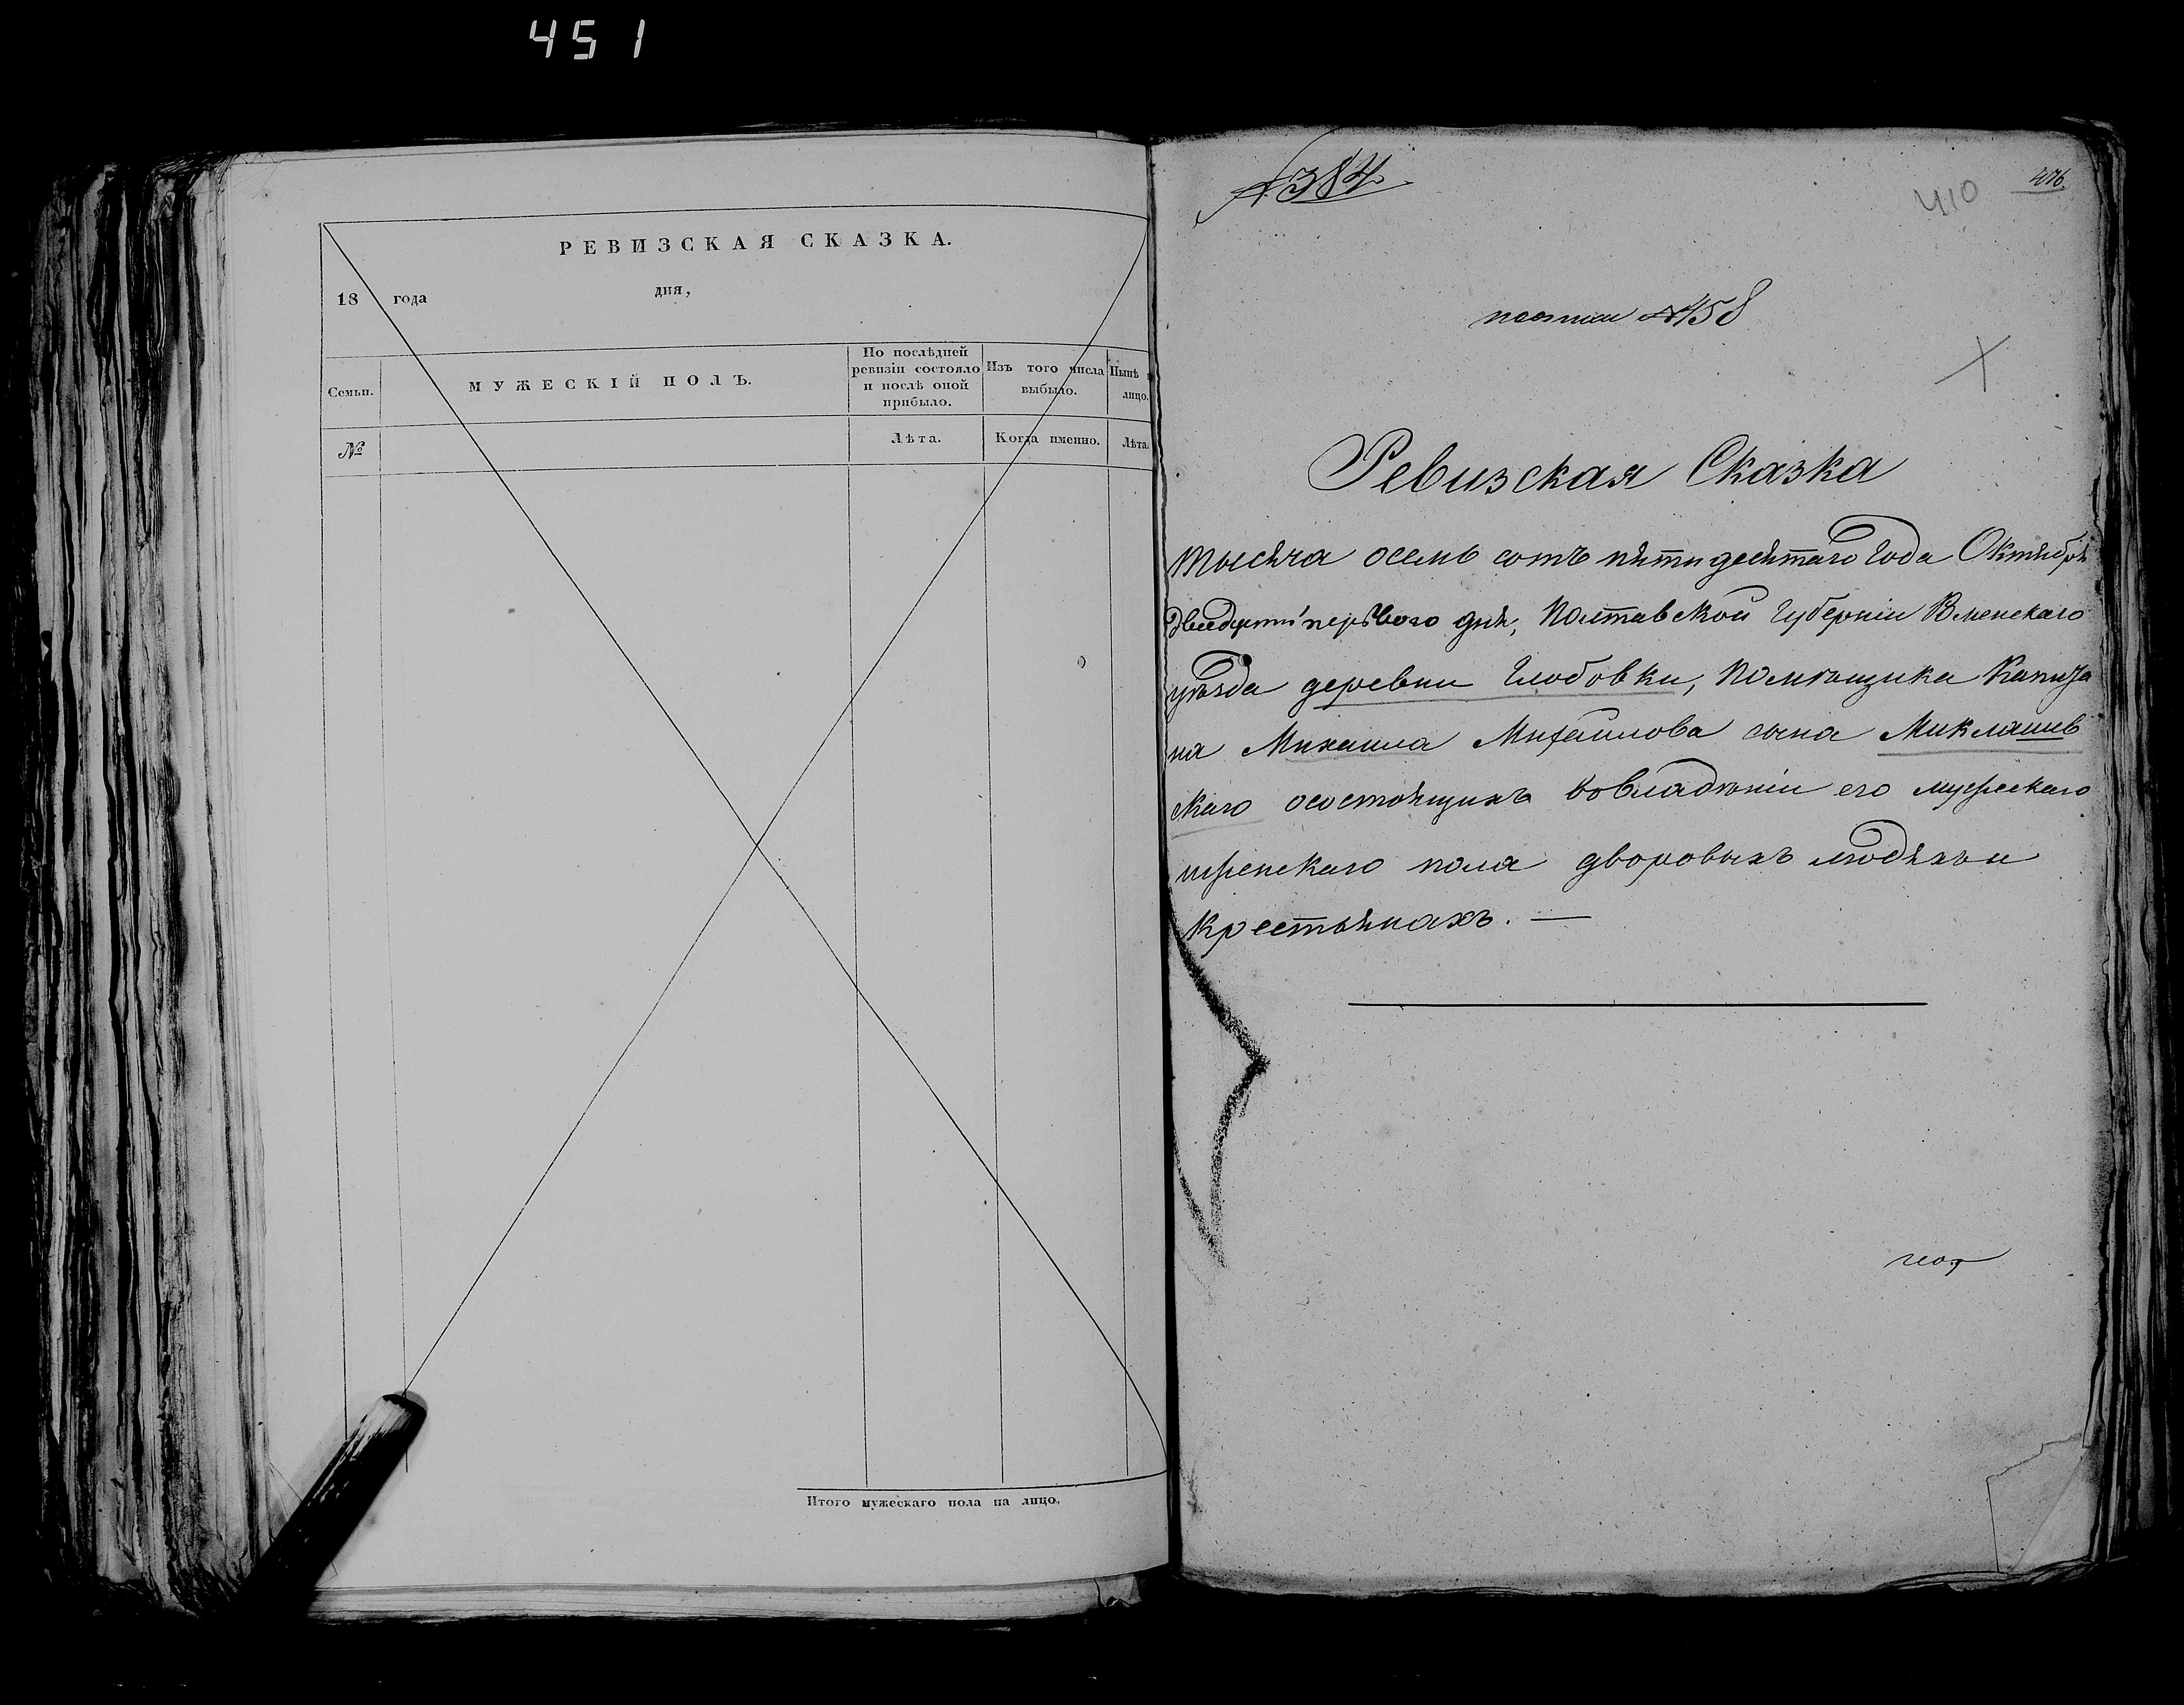 451
РЕВИЗСКАЯ СКАЗКА.
18 года дня,
Семьи.
МУЖЕСКІЙ ПОЛЪ.
По послѣдней ревизіи состояло и послѣ оной прибыло.
Изъ того числа выбыло.
Нынѣ лицо.
№
Лѣта.
Когда именно.
Лѣта
Итого мужескаго пола на лицо.
№ 384.
410
476.
№ 458
Ревизская Сказка
тысяча осемь сотъ пятидесятаго года Октября
двадцать первого дня, Полтавской Губерніи
уѣзда деревни Глобовки, Помѣщика Капита
на Михаила Михайлова сына Миклашев
скаго осостоящихъ вовладѣніи его мужескаго
иженскаго пола дворовыхъ людяхъ и
крестьянахъ. —